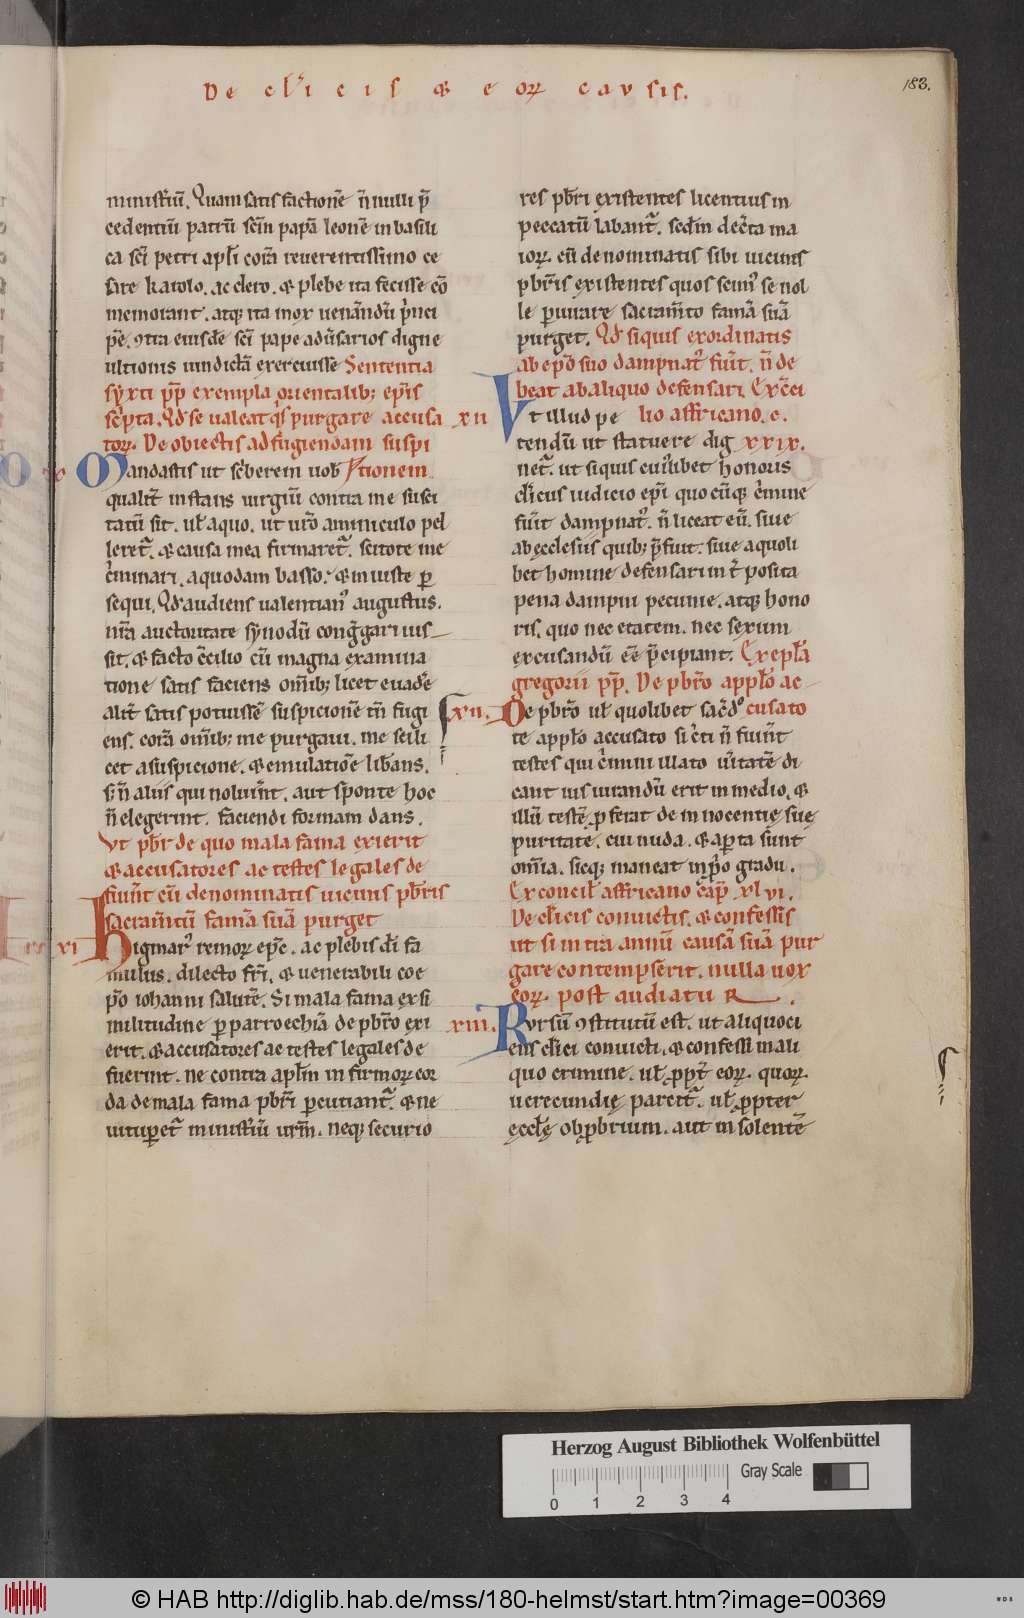 De cl'icis & eoꝝ causis.
183.
minist'iū. Quam satis factionē n̄ nulli p̄
cedentiū patrū scīm papā leonē in basili
ca sc̄i petri apl'i corā reuerentissimo ce
sare karolo. ac clero. & plebe ita fecisse cō
memorant. atq; ita mox uenandū p'nci
pē. ꝯtra eiusdē sc̄i pape adūsarios digne
ultionis uindictā exercuisse Sententia
syxti p̄p exempla orientalib; ep̄is
sc'pta. Qd' se ualeat q's purgare accusa
toꝝ. De obiectis ad fugiendam suspi
Mandastis ut sc'berem uob' ctionem
qualit' instans iurgiū contra me susci
tatū sit. ul' a quo. ut ur̄o aminiculo pel
leret'. & causa mea firmaret'. scitote me
c'minari. a quodam basso. & iniuste p
sequi. Qd' audiens ualentian' augustus.
nr̄a auctoritate synodū cong'gari ius
sit. & facto c̄cilio cū magna examina
tione satis faciens om̄ib; licet euadē
alit' satis potuissē suspicionē tn̄ fugi
ens. corā om̄ib; me purgaui. me scili
cet a suspicione. & emulatiōe lib'ans.
s; n̄ aliis qui noluer̄nt. aut sponte hoc
n̄ elegerint. faciendi formam dans.
Vt pb'r de quo mala fama exierit
& accusatores ac testes legales de
fiunt cū denominatis uicinis pb'ris
xi
sacram̄tū famā suā purget
higmar' remoꝝ ep̄c. ac plebis di' fa
mulus. dilecto fr'i. & uenerabili coe
p̄o iohanni salutē. Si mala fama ex si
militudine p parroechiā de pb'ro exi
erit. & accusatores ac testes legales de
fuerint. ne contra apl'm infirmoꝝ cor
da de mala fama pb'ri percutiant'. & ne
uituperet' minist'iū ur̄m. neq; securio
res pb'ri existentes licentius in
peccatū labant'. sedm̄ decr̄ta ma
ioꝝ cū denominatis sibi uicinis
pb'ris existentes quos scim' se nol
le periurare sacram̄to famā suā
purget. Qd' siquis ex ordinatis
ab ep̄o suo dampnat' fu'it. n̄ de
beat ab aliquo defensari. Ex c̄ci
xii
Vt illud pe lio affricano. c.
tendū ut statuere dig xxix.
net'. ut siquis cui'libet honoris
cl'icus iudicio ep̄i quocūq; c'mine
fu'it dampnat'. n̄ liceat eū. siue
ab ecclesiis quib; p̄fuit. siue a quoli
bet homine defensari int'posita
pena dampni pecunie. atq; hono
ris. quo nec etatem. nec sexum
excusandū eē p̄cipiant. Ex epl'a
gregorii p̄p. De pb'ro appl'o ac
xii.
De pb'ro ul' quolibet sac'do cusato
te appl'o accusato si c'ti n̄ fiunt
testes qui c'mini illato u'itatē di
cant ius iurandū erit in medio. &
illū testē p ferat de innocentię suę
puritate. cui nuda. & aperta sunt
om̄ia. sicq; maneat in p̄o gradu.
Ex concil' affricano cap̄ xlvi.
De cl'icis conuictis. & confessis
ut si intra annū causā suā pur
gare contempserit. nulla uox
eoꝝ post audiatur.
xiii.
Rursū ꝯstitutū est. ut aliquoci
ens cl'ici conuicti. & confessi in ali
quo crimine. ul' ppt' eoꝝ. quoꝝ
uerecundię parcit'. ul' ppter
eccl'ę obpbrium. aut insolentē
Herzog August Bibliothek Wolfenbüttel
Gray Scale
0 1 2 3 4
© HAB http://diglib.hab.de/mss/180-helmst/start.htm?image=00369